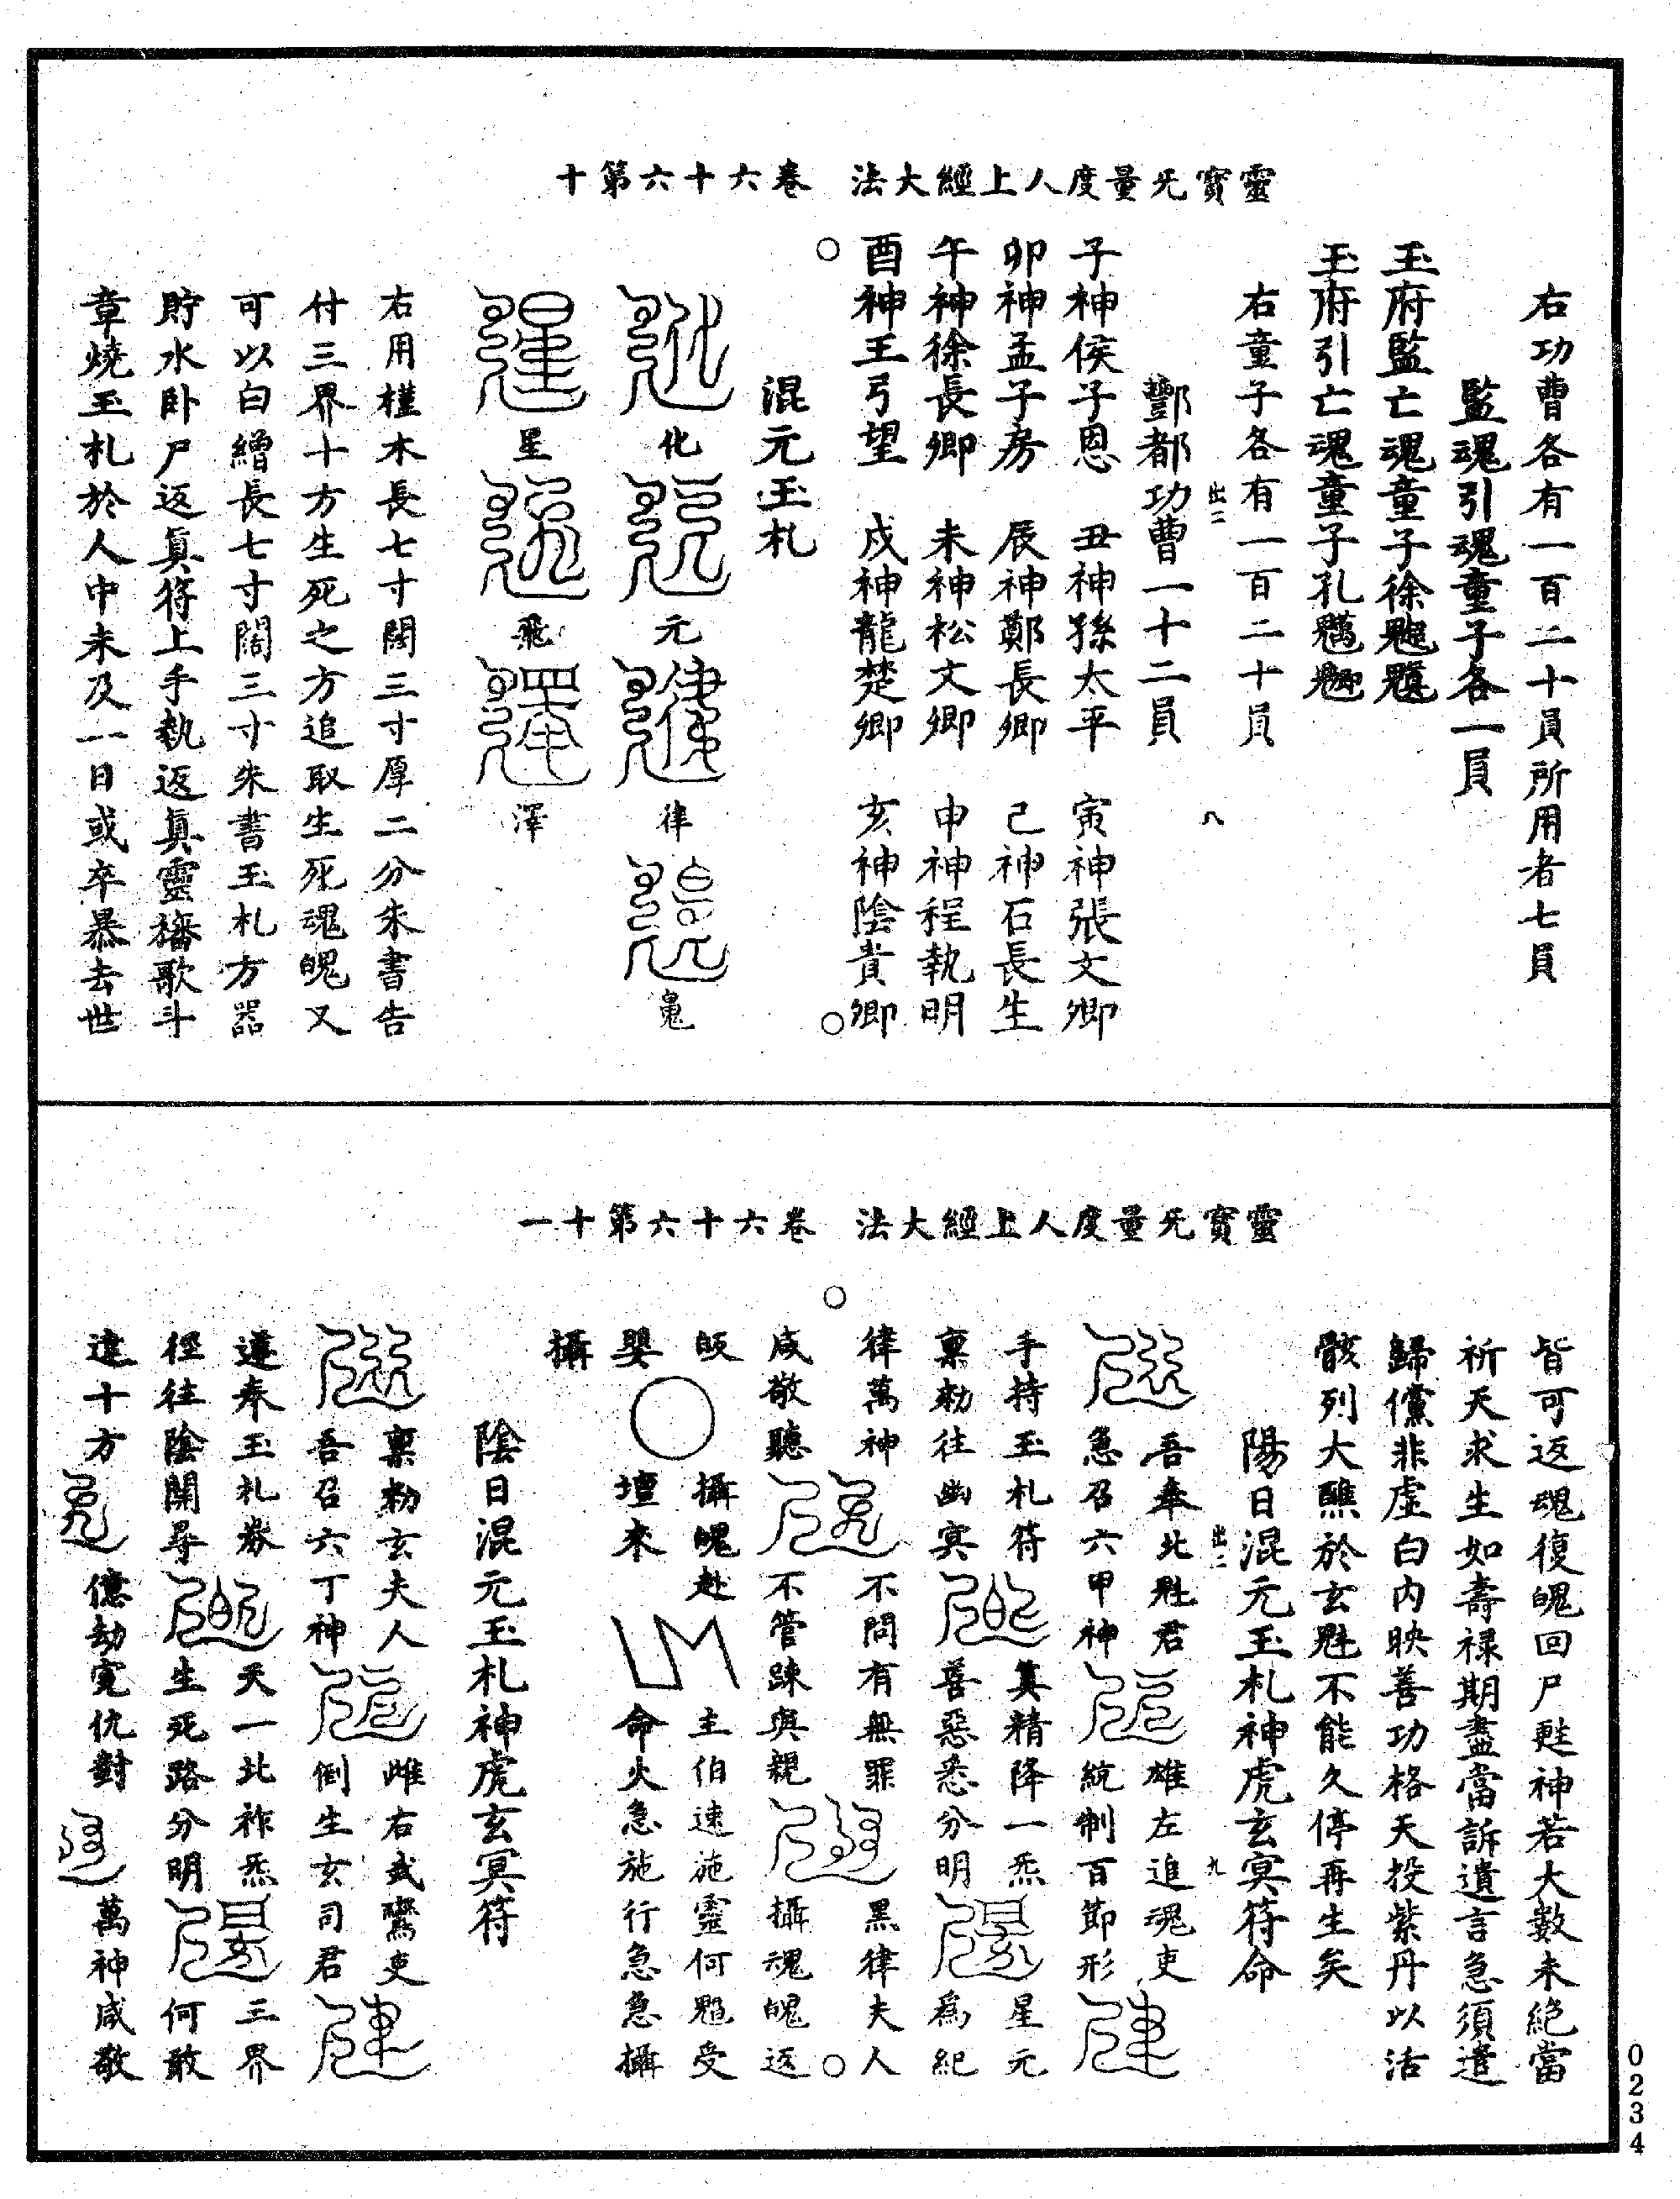 靈寶无量度人上經大法　卷六十六第十
右功曹各有一百二十員所用者七員
監魂引魂童子各一員
玉府監亡魂童子徐
玉府引亡魂童子孔
右童子各有一百二十員
出二　八
酆都功曹一十二員
子神侯子恩　丑神孫太平　寅神張文卿
卯神孟子房　辰神鄭長卿　巳神石長生
午神徐長卿　未神松文卿　申神程執明
酉神王弓望　戌神龍楚卿　亥神陰貴卿
混元玉札
化　元　律
星　飛　澤
右用槿木長七寸闊三寸厚二分朱書告
付三界十方生死之方追取生死魂魄又
可以白繒長七寸闊三寸朱書玉札方器
貯水卧尸返真符上手執返真靈旛歌斗
章燒玉札於人中未及一日或卒暴去世
靈寶无量度人上經大法　卷六十六第十一
皆可返魂復魄回尸甦神若大數未絕當
祈天求生如壽祿期盡當訴遺言急須遣
歸儻非虛白內映善功格天投紫丹以活
骸列大醮於玄魁不能久停再生矣
出二　九
陽日混元玉札神虎玄冥符命
吾奉北魁君　雄左追魂吏
急召六甲神　統制百節形
手持玉札符　真精降一炁　星元
稟勑往幽冥　善惡悉分明　為紀
律萬神　不問有無罪　黑律夫人
咸敬聽　不管踈與親　攝魂魄返
皈　攝魄赴　主伯速施靈何　受
嬰　壇來　命火急施行急急攝
攝
陰日混元玉札神虎玄冥符
稟勑玄夫人　雌右威鸞吏
吾召六丁神　倒生玄司君
遵奉玉札券　天一北祚炁　三界
徑往陰關尋　生死路分明　何敢
違十方　億劫寃仇對　萬神咸敬
0234